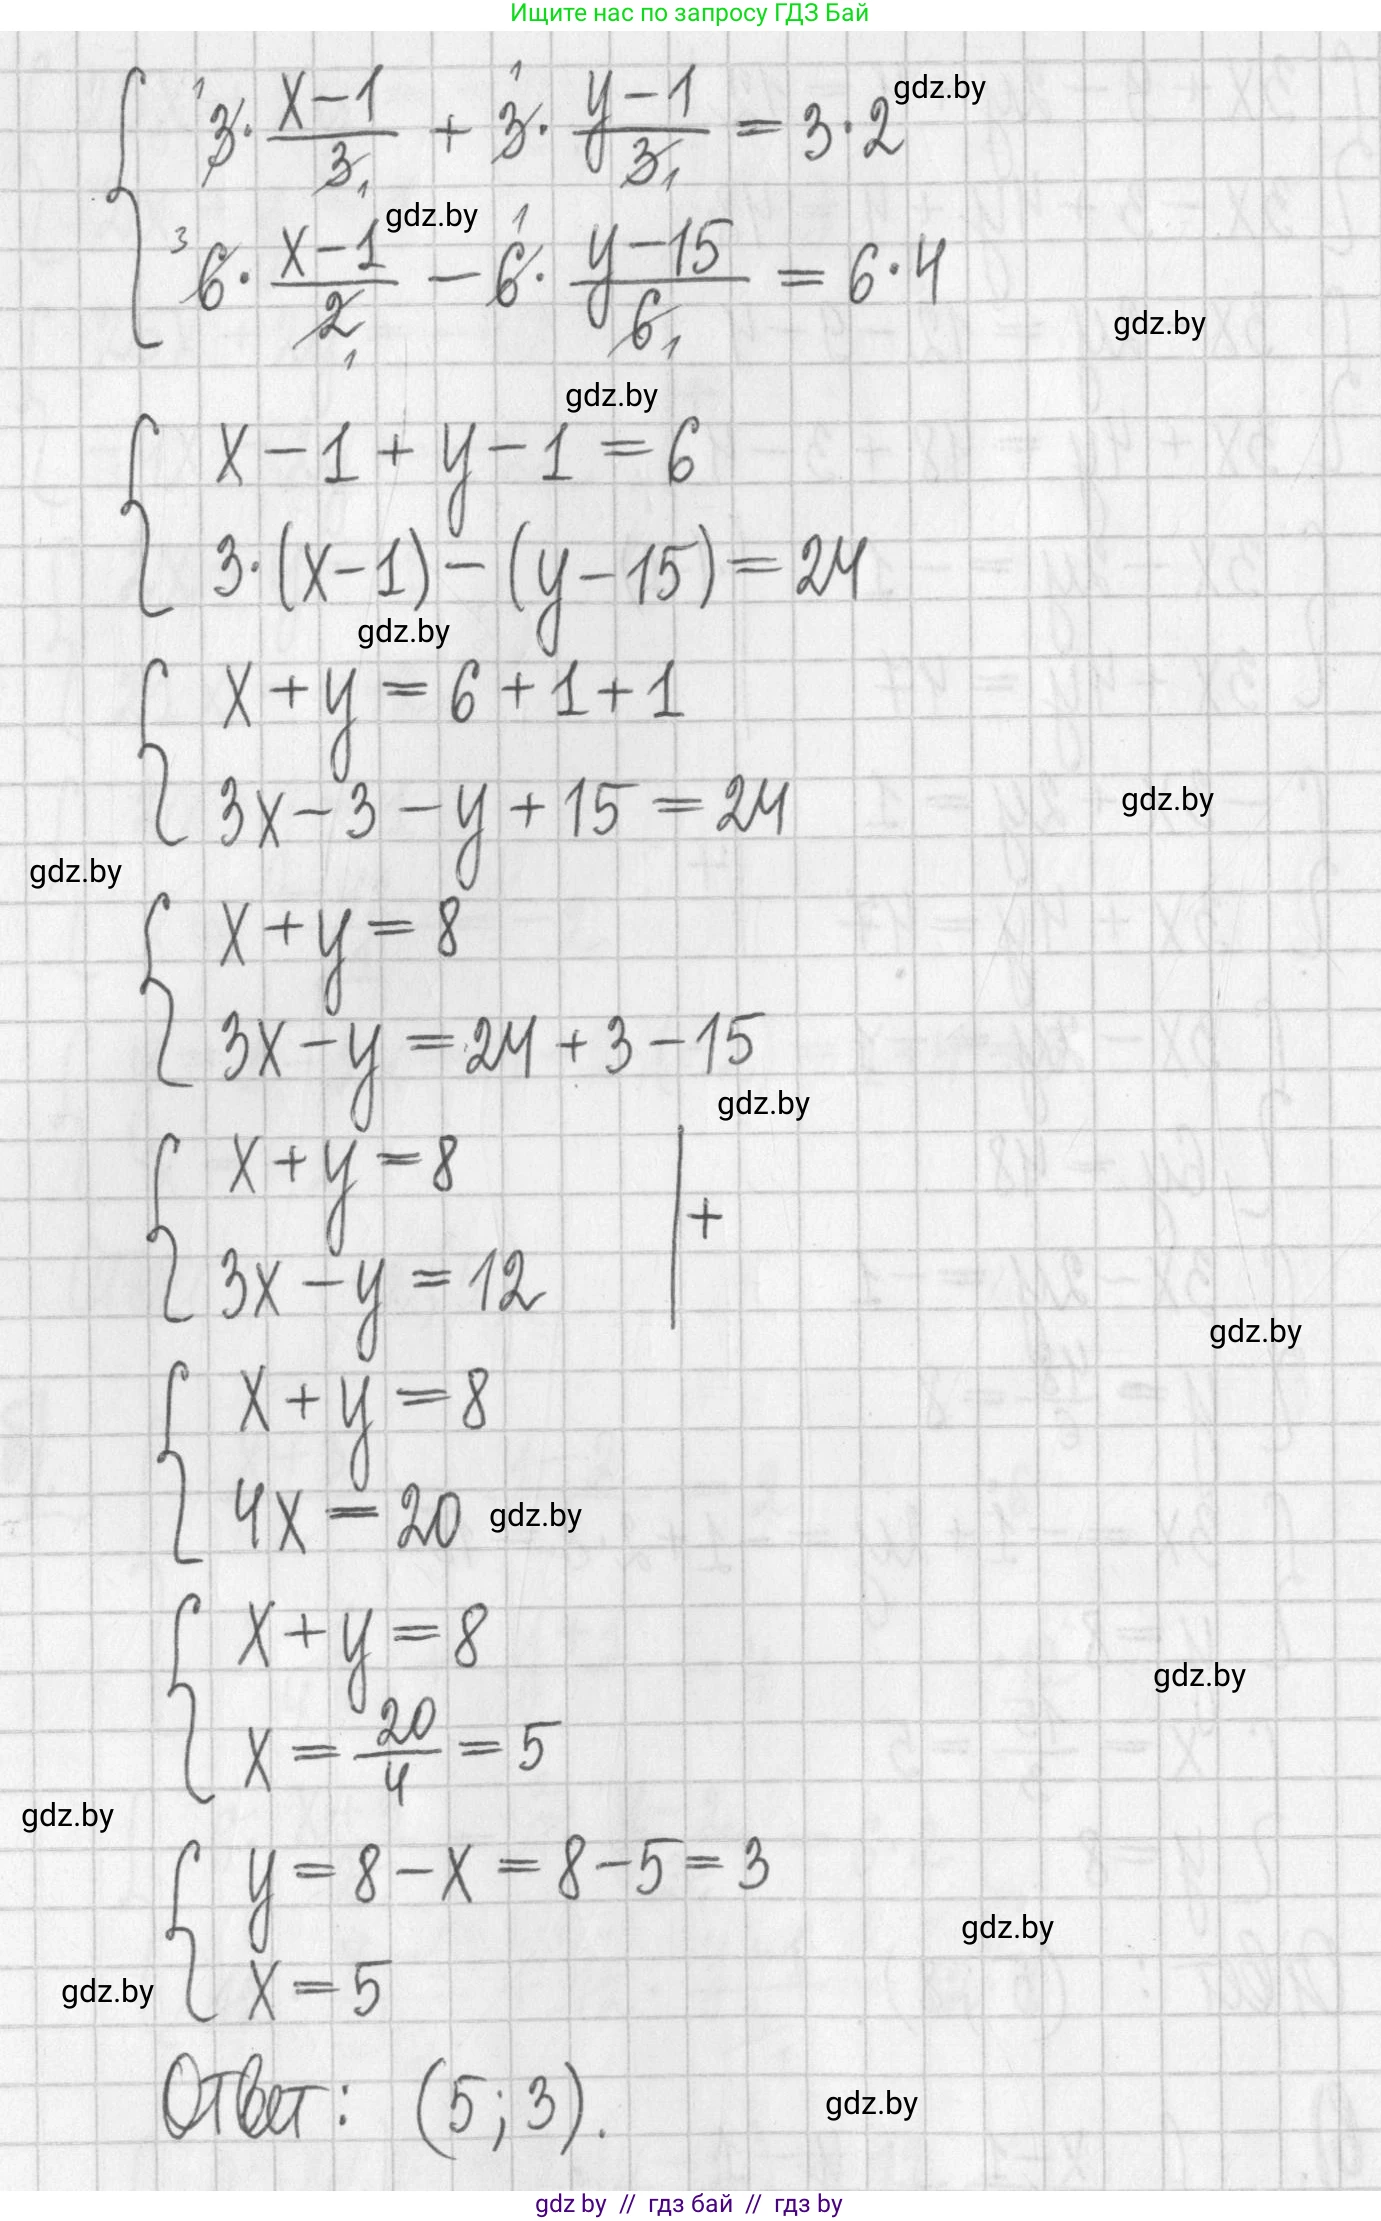 Ищите нас по запросу ГДЗ Бай
{ 3· (x-1)/3 + 3· (y-1)/3 = 3·2 gdz.by
1 1 1 1
gdz.by
6· (x-1)/2 - 6· (y-15)/6 = 6·4
3 1 1 1
gdz.by
gdz.by
{ x-1+y-1=6
3·(x-1)-(y-15)=24
gdz.by
{ x+y=6+1+1
3x-3-y+15=24
gdz.by
gdz.by
{ x+y=8
3x-y=24+3-15
gdz.by
{ x+y=8 | +
3x-y=12
gdz.by
{ x+y=8
4x=20 gdz.by
{ x+y=8
gdz.by
x= 20/4 =5
gdz.by
{ y=8-x=8-5=3
gdz.by
x=5
gdz.by
Ответ: (5;3).
gdz.by
gdz by // гдз бай // гдз by